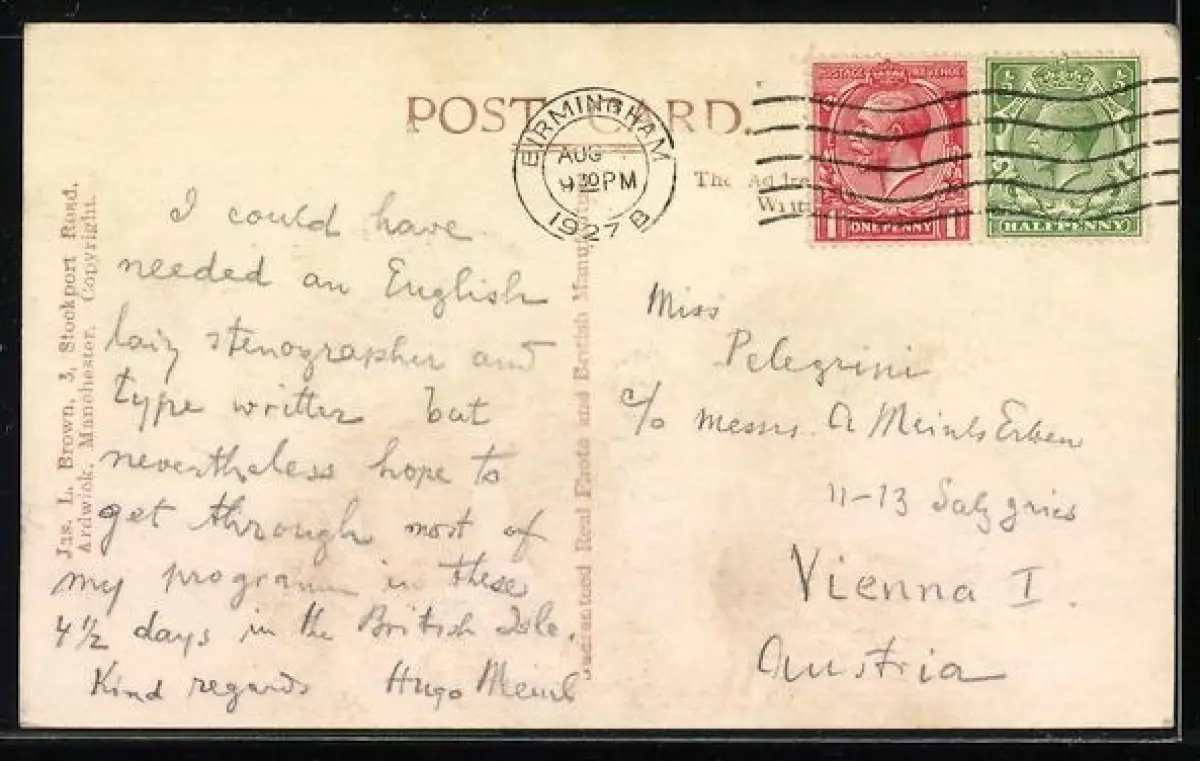 POST CARD.
BIRMINGHAM
AUG
9 30 PM
1927 B
POSTAGE REVENUE
1 ONE PENNY 1
HALFPENNY
The Addre
Writt
Jas. L. Brown, 3, Stockport Road,
Ardwick, Manchester. Copyright.
Guaranteed Real Photo and British Manu
I could have
needed an English
stenographer and
type writter but
nevertheless hope to
get through most of
my programm in these
4 1/2 days in the British Isle.
Kind regards Hugo Meinl
Miss
Pelegrini
c/o Messrs. A Meinls Erben
11-13 Salzgries
Vienna I.
Austria